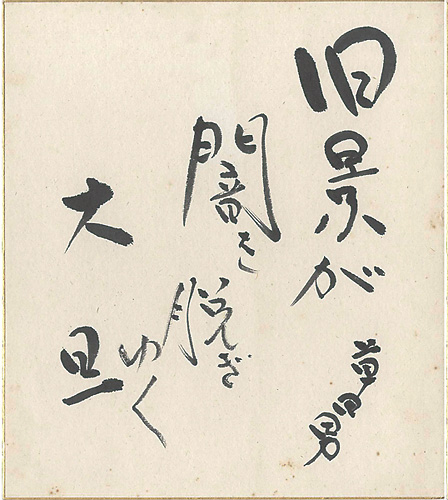 旧景が
闇を脱ぎゆく
大旦
草田男